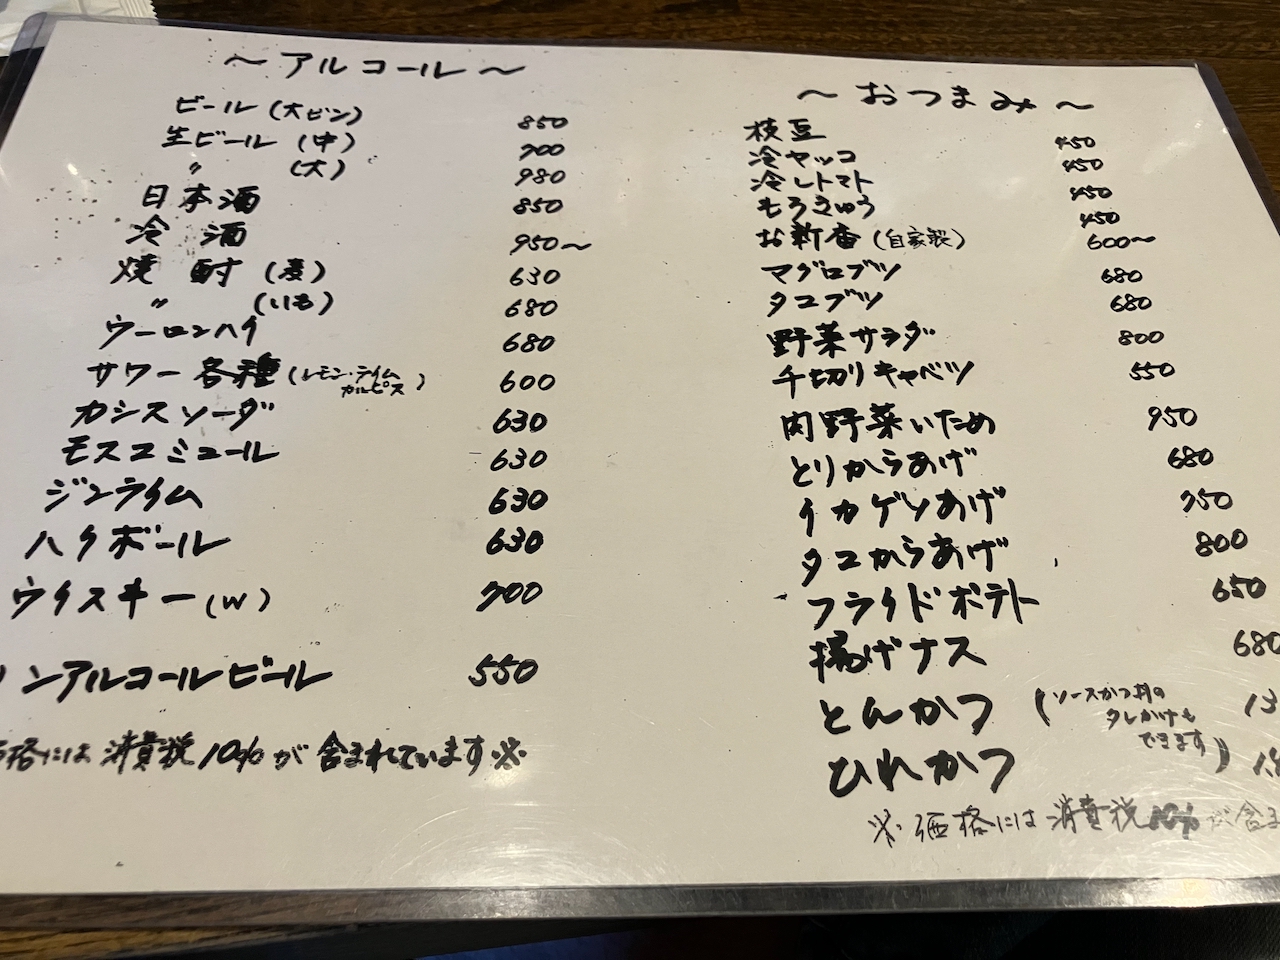 ～アルコール～
ビール(大ビン) 850
生ビール(中) 700
〃 (大) 980
日本酒 850
冷酒 950～
焼酎(麦) 630
〃 (いも) 680
ウーロンハイ 680
サワー各種(レモン・ライム カルピス) 600
カシスソーダ 630
モスコミュール 630
ジンライム 630
ハイボール 630
ウイスキー(W) 700
ノンアルコールビール 550
価格には消費税10%が含まれています※
～おつまみ～
枝豆 450
冷ヤッコ 450
冷しトマト 450
もろきゅう 450
お新香(自家製) 600～
マグロブツ 680
タコブツ 680
野菜サラダ 800
千切りキャベツ 550
肉野菜いため 950
とりからあげ 680
イカゲソあげ 750
タコからあげ 800
フライドポテト 650
揚げナス 680
とんかつ (ソースかつ丼の 13
タレかけも
できます)
ひれかつ
※価格には消費税10%が含ま